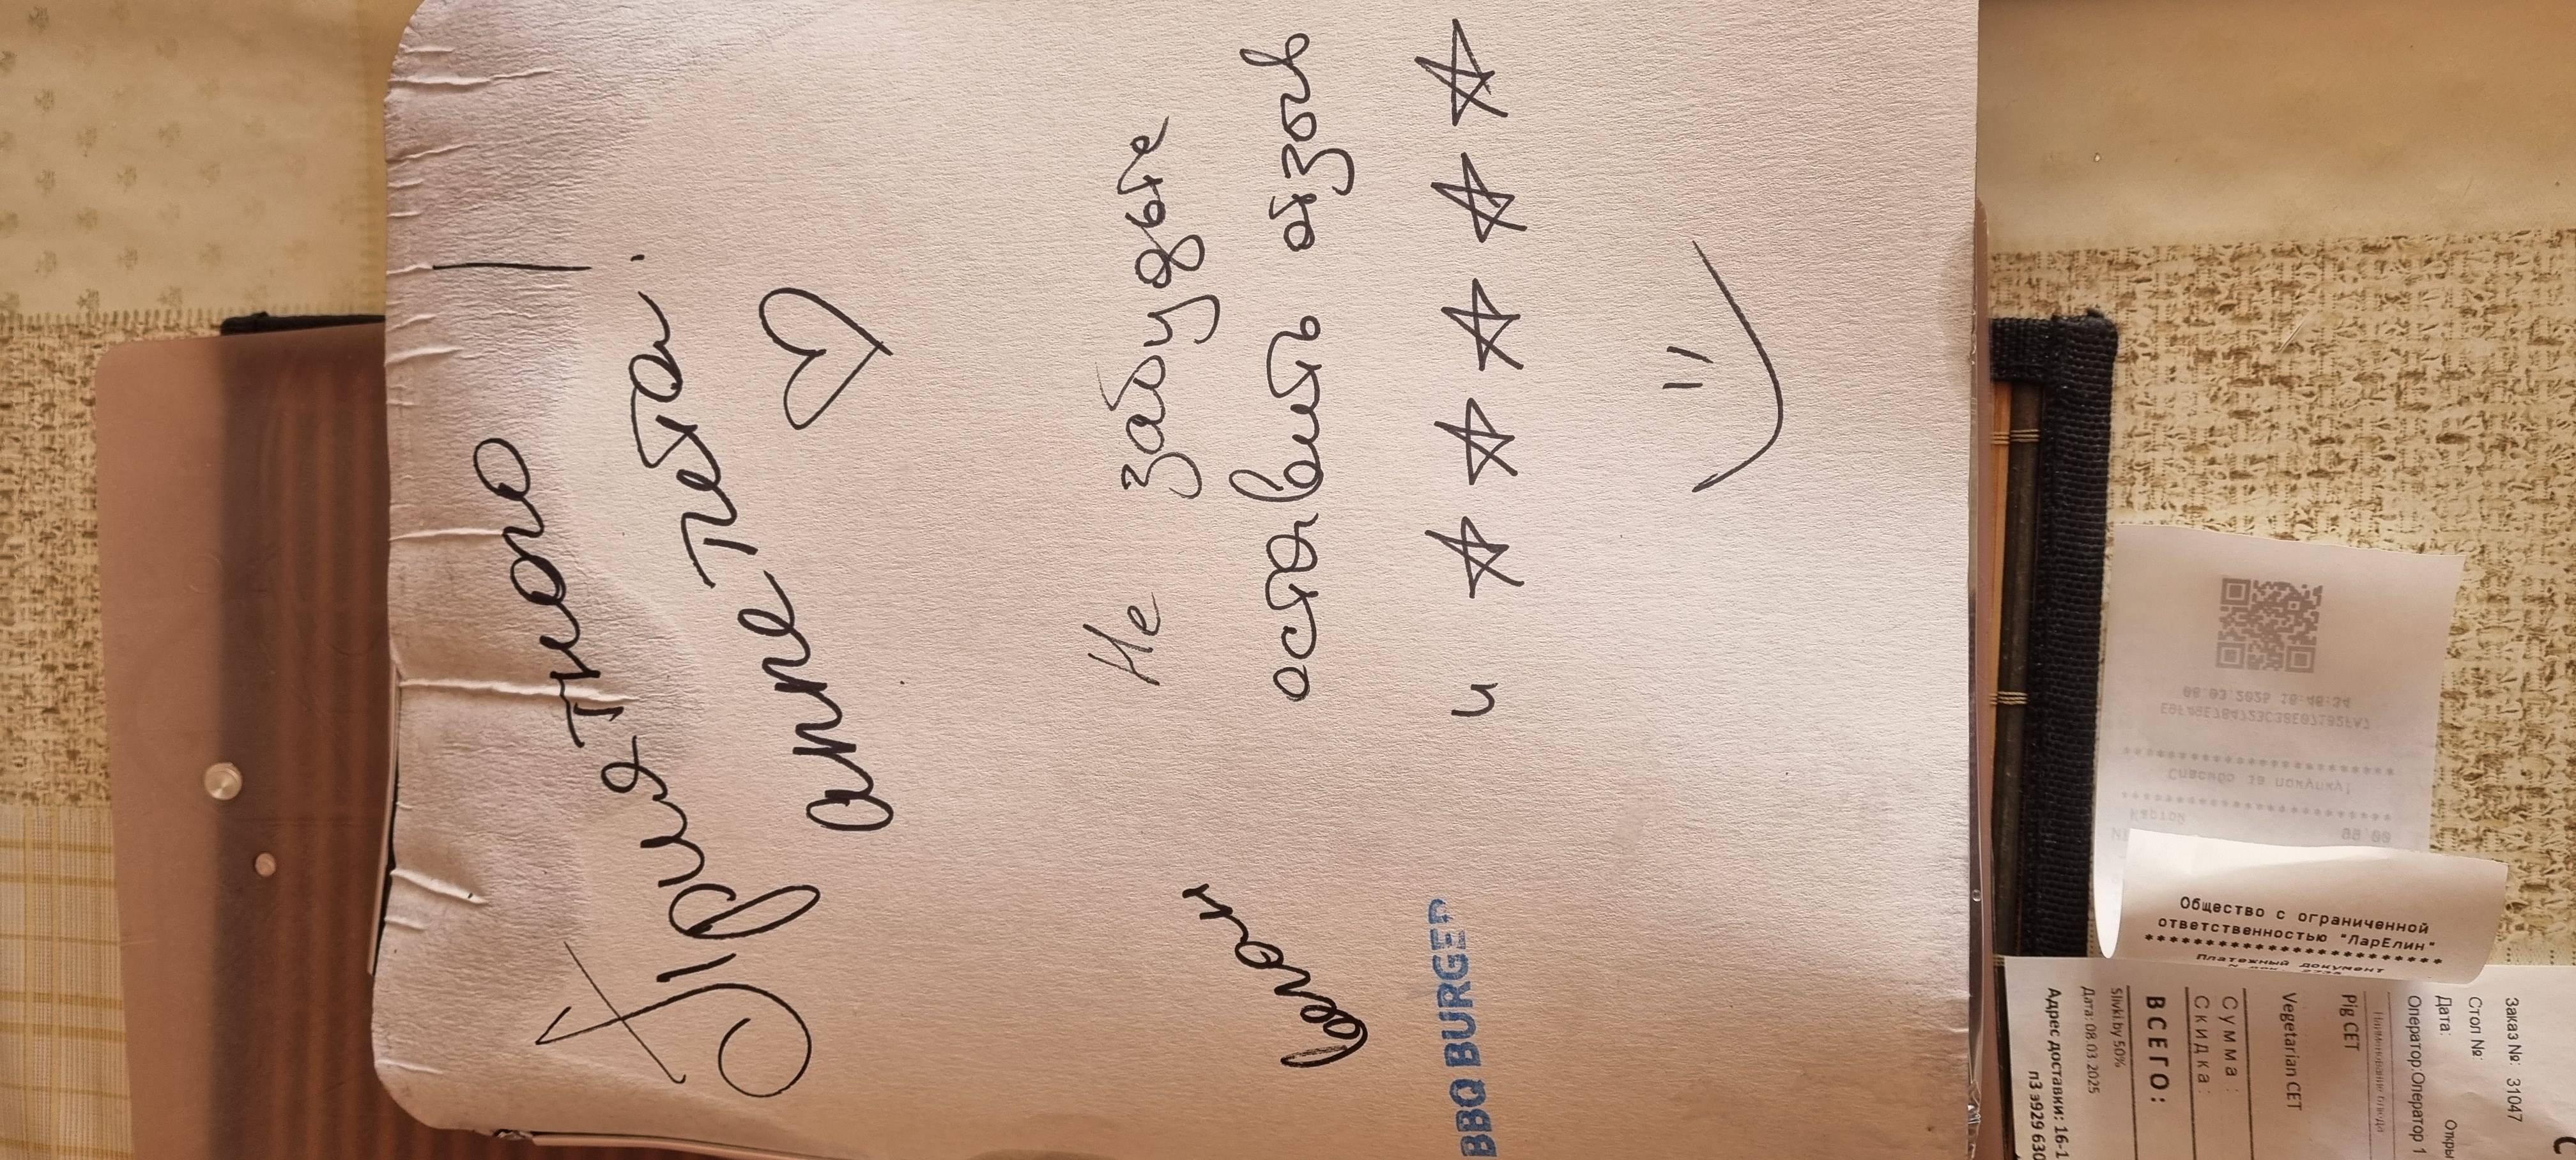 Приятного
аппетита!
Не забудьте
оставить отзыв
и
веган
BBQ BURGER
08.03.2025
Спасибо за покупку!
Общество с ограниченной
ответственностью "ЛарЕлин"
**********************
Платежный документ
Заказ №: 31047
Стол №:
Дата:
Оператор:Оператор 1
Pig СЕТ
Vegetarian СЕТ
Сумма:
Скидка:
ВСЕГО:
Slivki.by 50%
Дата: 08.03.2025
Адрес доставки: 16-1
п3 э9